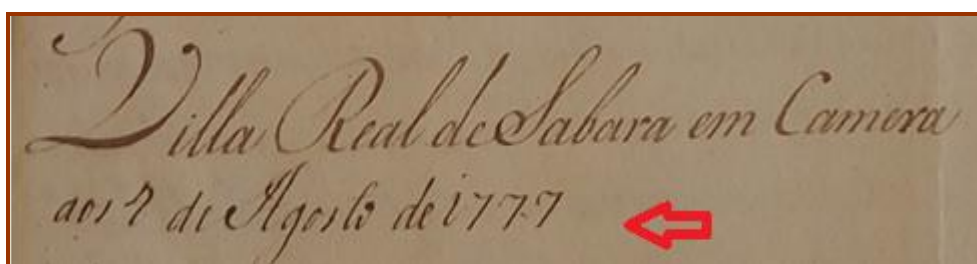 Villa Real de Sabara em Camera
aos 7 de Agosto de 1777